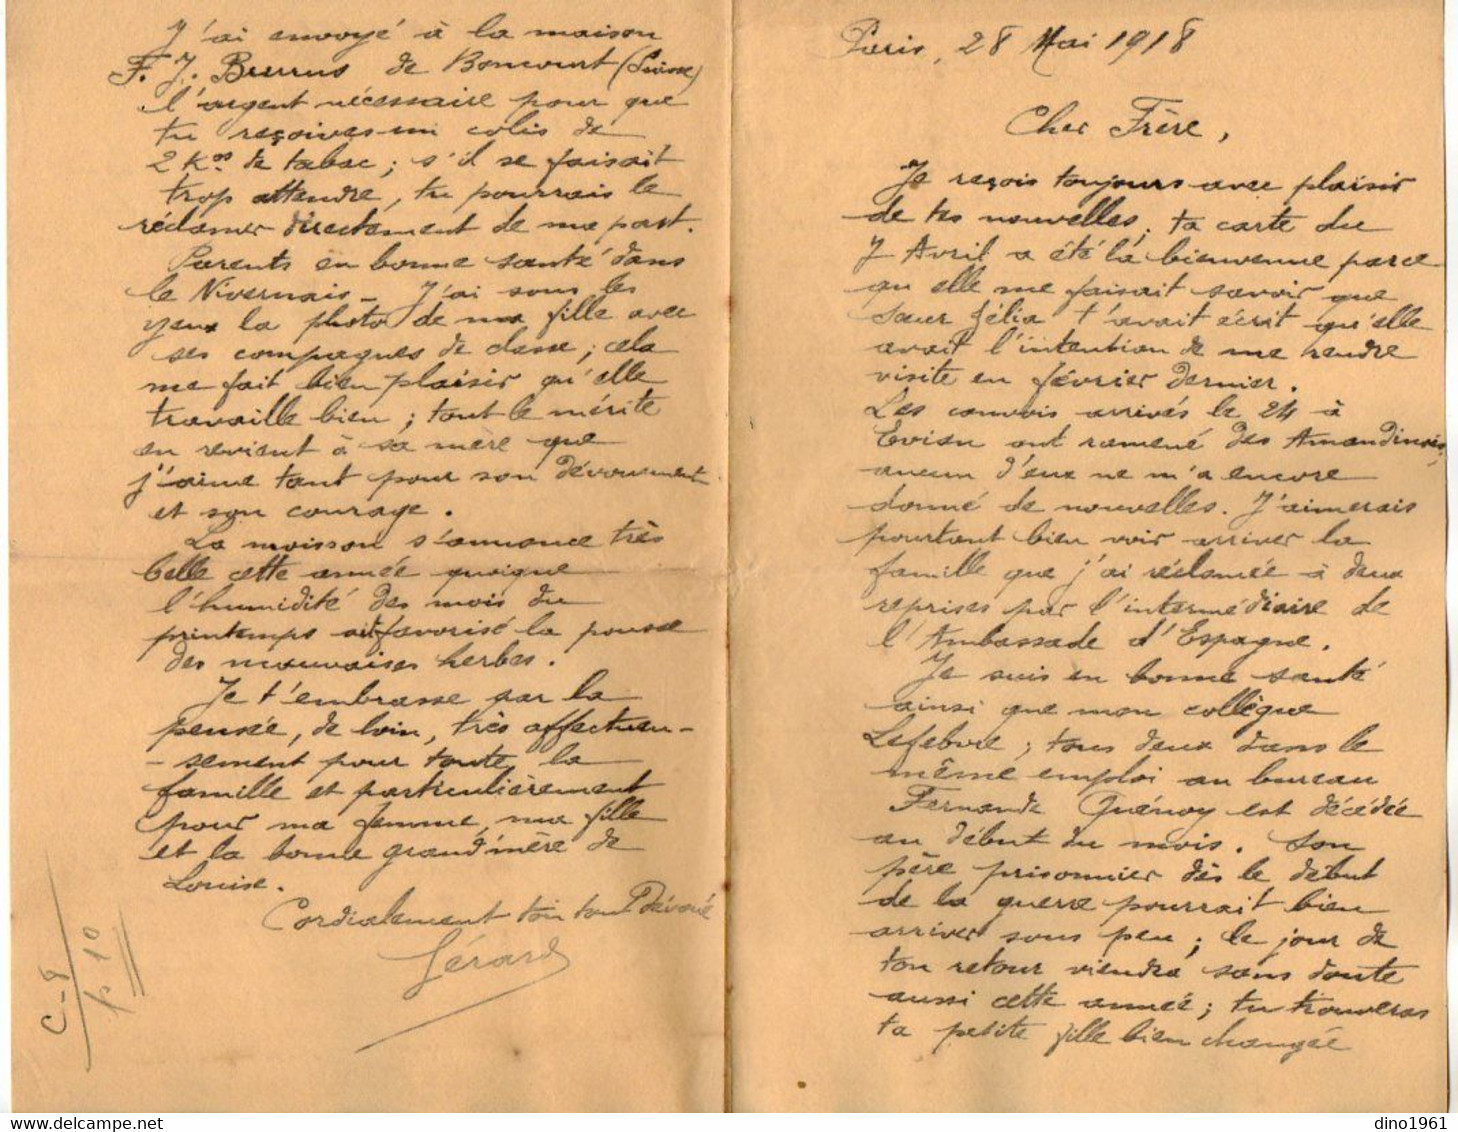 Paris, 28 Mai 1918
Cher Frère,
Je reçois toujours avec plaisir
de tes nouvelles; ta carte du
7 Avril a été la bienvenue parce
qu'elle me faisait savoir que
Sœur Félia t'avait écrit qu'elle
avait l'intention de me rendre
visite en février dernier.
Les convois arrivés le 24 à
Evian ont ramené des Amandinois,
aucun d'eux ne m'a encore
donné de nouvelles. J'aimerais
pourtant bien voir arriver la
famille que j'ai réclamée à deux
reprises par l'intermédiaire de
l'Ambassade d'Espagne.
Je suis en bonne santé
ainsi que mon collègue
Lefebvre; tous deux dans le
même emploi au bureau
Fernande Quénoy est décédée
au début du mois. Son
père prisonnier dès le début
de la guerre pourrait bien
arriver sous peu; le jour de
ton retour viendra sans doute
aussi cette année; tu trouveras
ta petite fille bien changée
J'ai envoyé à la maison
F. J. Burrus de Boncourt (Suisse)
l'argent nécessaire pour que
tu reçoives un colis de
2 Kos de tabac; s'il se faisait
trop attendre, tu pourrais le
réclamer directement de ma part.
Parents en bonne santé dans
le Nivernais - J'ai sous les
yeux la photo de ma fille avec
ses compagnes de classe; cela
me fait bien plaisir qu'elle
travaille bien; tout le mérite
en revient à sa mère que
j'aime tant pour son dévouement
et son courage.
La moisson s'annonce très
belle cette année quoique
l'humidité des mois du
printemps ait favorisé la pousse
des mauvaises herbes.
Je t'embrasse par la
pensée, de loin, très affectueu-
-sement pour toute la
famille et particulièrement
pour ma femme, ma fille
et la bonne grand'mère de
Louise.
Cordialement ton tout Dévoué
Gérard
C-8
p 10
dino1961